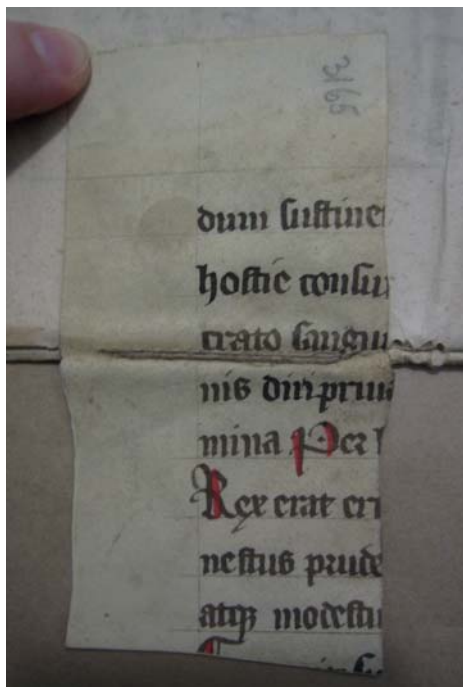 3165
dum sustine
hostie consur
crato sangui
nis diri prim
mina Per h
Rex erat eri
nestus prude
atqꝫ modestu